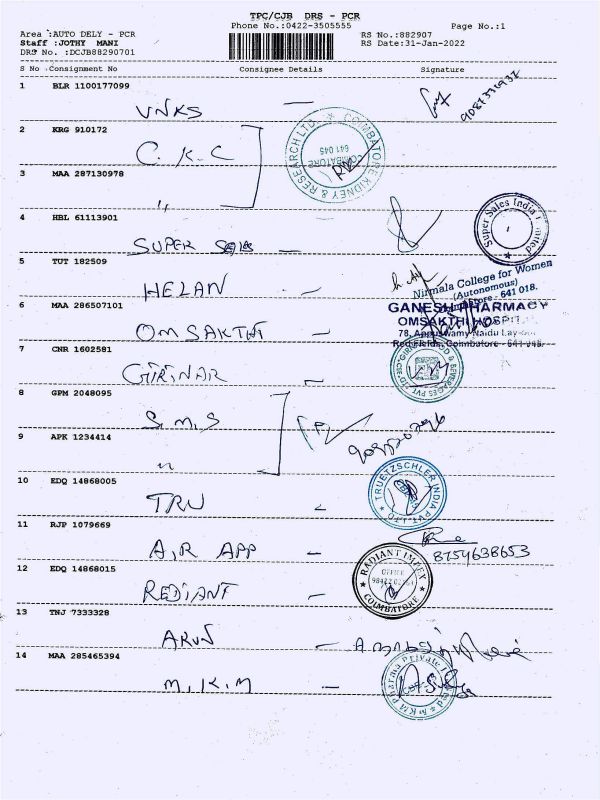 TPC/CJB DRS - PCR
Phone No.:0422-3505555
Page No.:1
Area :AUTO DELY - PCR
RS No.:882907
Staff :JOTHY MANI
RS Date:31-Jan-2022
DRS No. :DCJB88290701
S No Consignment No Consignee Details Signature
1 BLR 1100177099
VNKS
2 KRG 910172
C.K.C
COIMBATORE KIDNEY & RESEARCH LTD.
COIMBATORE
641 045
3 MAA 287130978
"
4 HBL 61113901
SUPER SALES
Super Sales India Limited
5 TUT 182509
HELAN
Nirmala College for Women
(Autonomous)
Coimbatore - 641 018.
6 MAA 286507101
OM SAKTHI
GANESH PHARMACY
OMSAKTHI HOSPIT
78, Appuswamy Naidu Layout
Red Fields, Coimbatore - 641 045.
7 CNR 1602581
GIRINAR
8 GPM 2048095
S.M.S
9 APK 1234414
"
10 EDQ 14868005
TRU
TRUETZSCHLER INDIA PVT. LTD
11 RJP 1079669
AIR APP
8754638653
12 EDQ 14868015
REDIANT
RADIANT IMPEX
OFFICE
COIMBATORE
13 TNJ 7333328
ARUN
14 MAA 285465394
M.K.M
MKM Pharma Private Limited